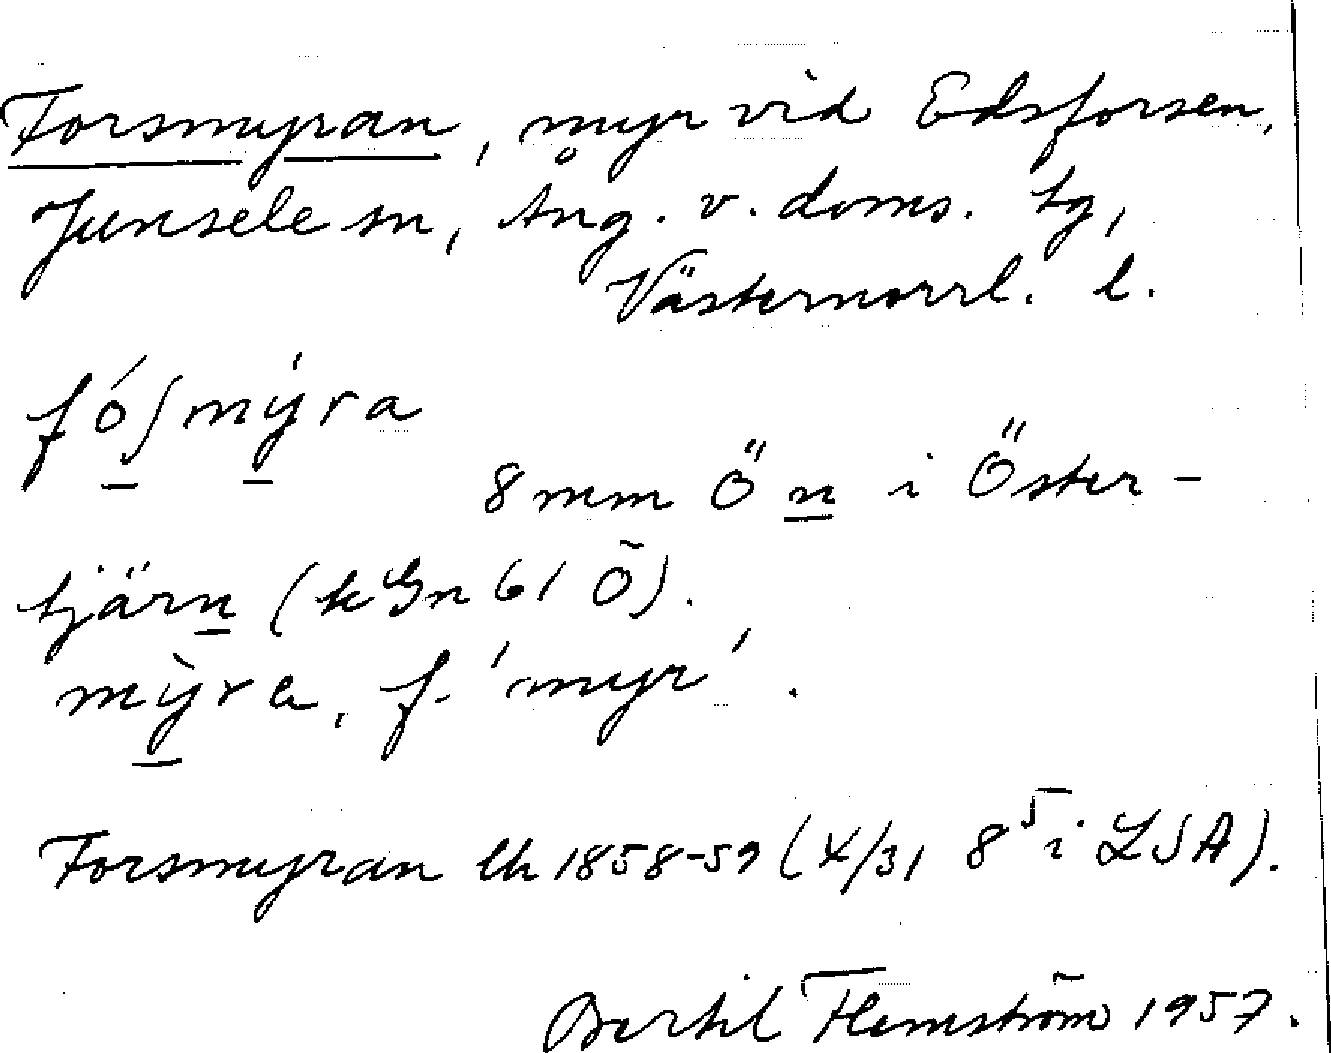 Forsmyran, myr vid Edsforsen,
Junsele sn, Ång. v. doms. tg,
Västernorrl. l.
fóʃmýra
8 mm Ö n i Öster-
tjärn (kGn 61 Ö).
mỳra, f. 'myr'.
Forsmyran lh 1858-59 (X/31 8⁵ i LSA).
Bertil Flemström 1957.